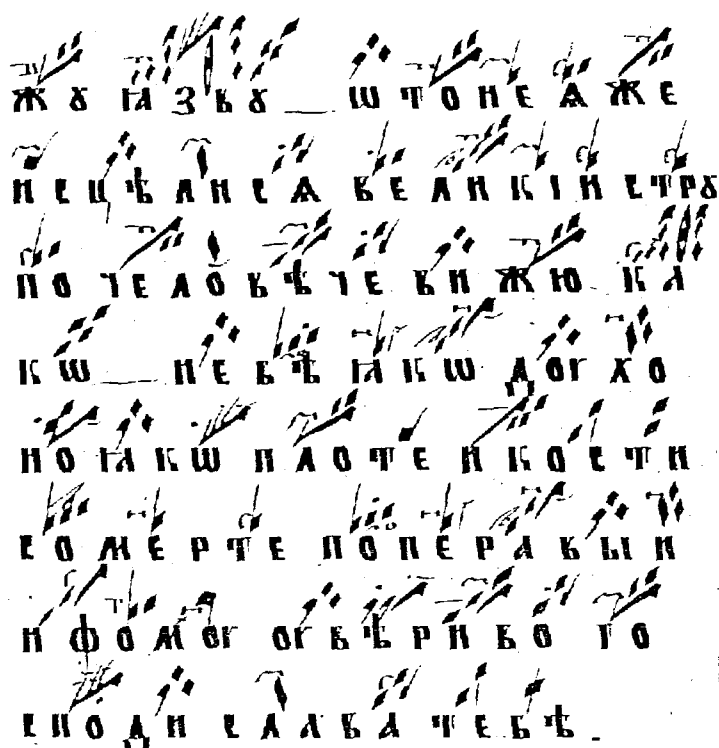 жꙋ ꙗзвꙋ ѡтонеѧже
исцѣлисѧ великіи стрꙋ
по человѣче вижю ка
кѡ невѣ ꙗкѡ доухо
но ꙗкѡ плоте и кости
сомерте поперавыи
и фомоу оувѣриво го
споди слава тебѣ.